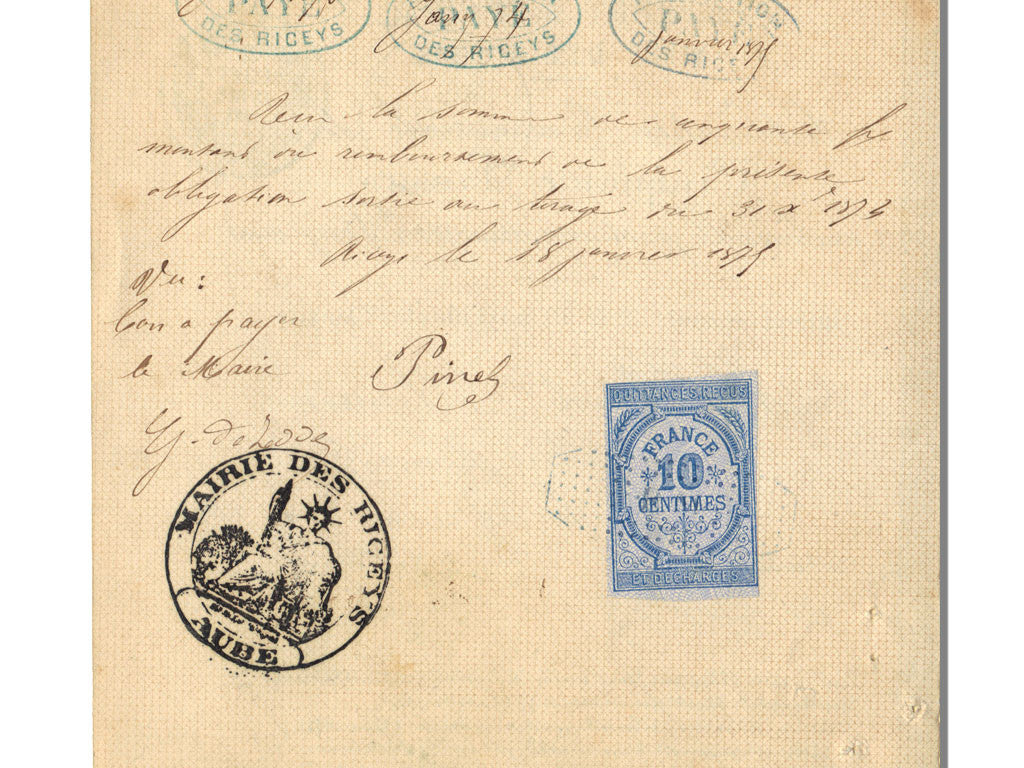 PAYÉ
DES RICEYS
Janv 74
PAYÉ
DES RICEYS
PAYÉ
Janvier 1875
DES RICE
Recu la somme de cinquante fr
montant du remboursement de la présente
obligation sortie au tirage du 31 Xe 1874
Riceys le 18 janvier 1875
Vu:
bon a payer
le Maire
Pinel
MAIRIE DES RICEYS
AUBE
QUITTANCES, REÇUS
FRANCE
10
CENTIMES
ET DÉCHARGES